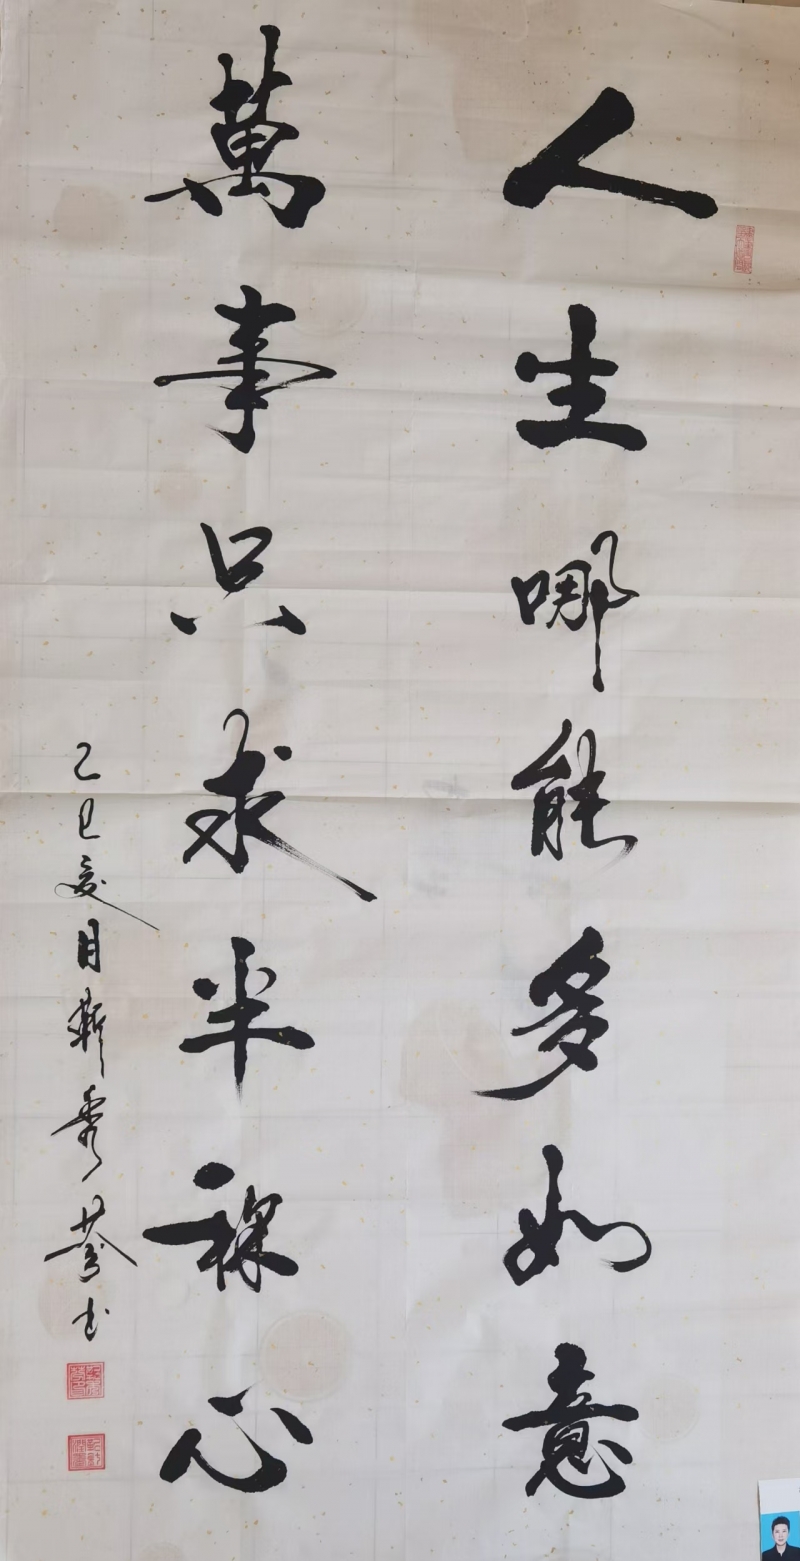 人生哪能多如意
萬事只求半稱心
乙巳夏月靳秀芬书